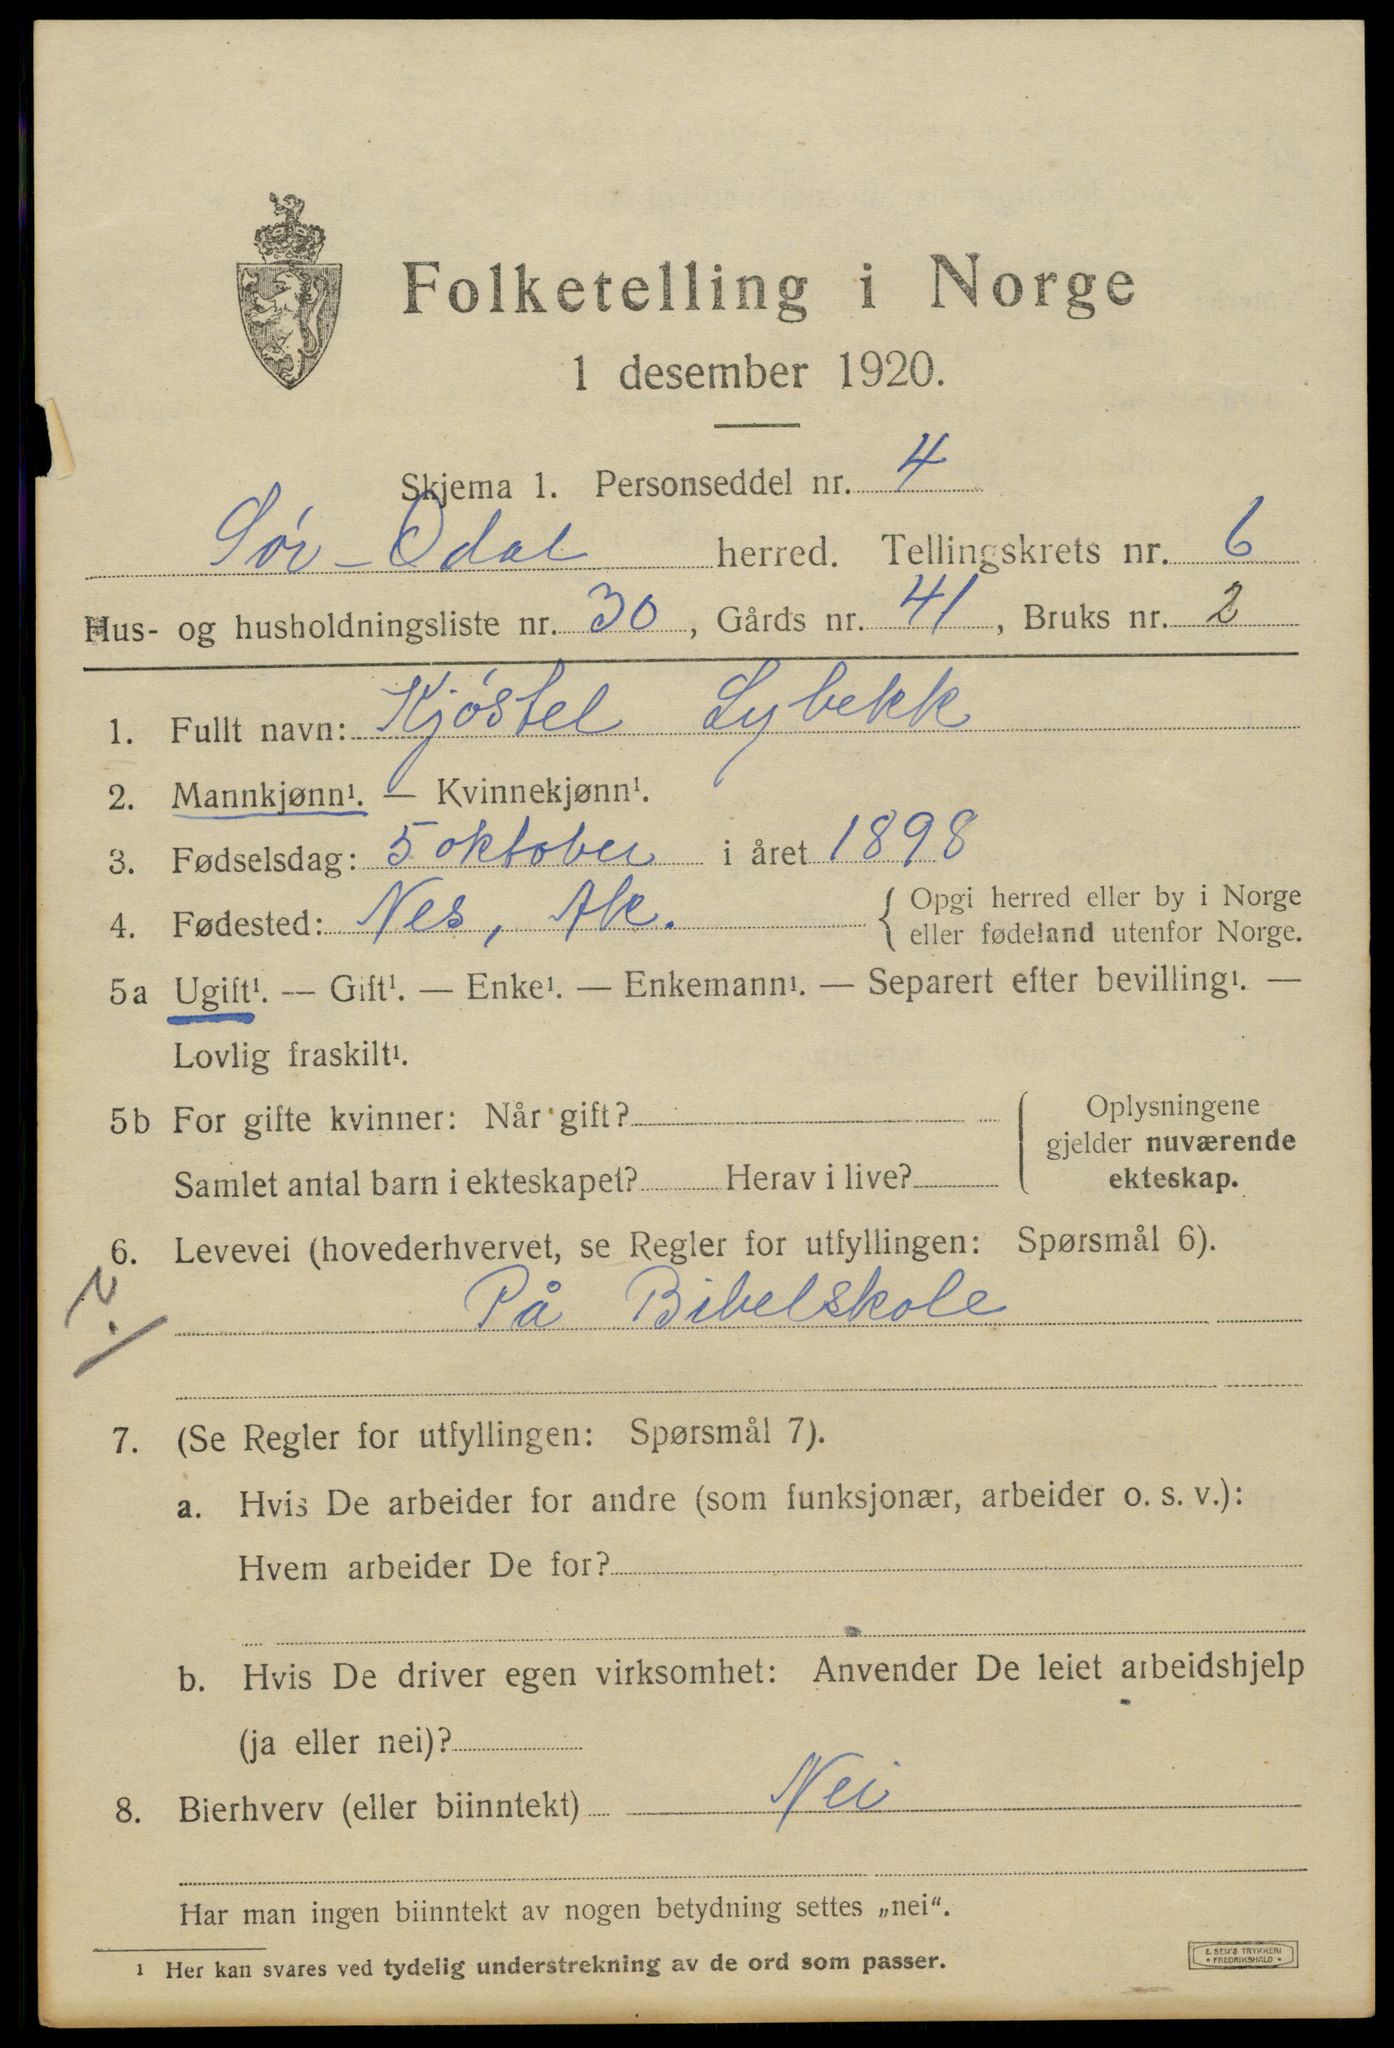 Folketelling i Norge
1 desember 1920.
Skjema 1. Personseddel nr. 4
Sør-Odal herred. Tellingskrets nr. 6
Hus- og husholdningsliste nr. 30, Gårds nr. 41, Bruks nr. 2
1. Fullt navn: Kjøstel Lybekk
2. Mannkjønn¹. — Kvinnekjønn¹.
3. Fødselsdag: 5 oktober i året 1898
4. Fødested: Nes, Ak. { Opgi herred eller by i Norge
eller fødeland utenfor Norge.
5a Ugift¹. — Gift¹. — Enke¹. — Enkemann¹. — Separert efter bevilling¹. —
Lovlig fraskilt¹.
5b For gifte kvinner: Når gift?
Samlet antal barn i ekteskapet? Herav i live?
Oplysningene
gjelder nuværende
ekteskap.
6. Levevei (hovederhvervet, se Regler for utfyllingen: Spørsmål 6).
På Bibelskole
7. (Se Regler for utfyllingen: Spørsmål 7).
a. Hvis De arbeider for andre (som funksjonær, arbeider o. s. v.):
Hvem arbeider De for?
b. Hvis De driver egen virksomhet: Anvender De leiet arbeidshjelp
(ja eller nei)?
8. Bierhverv (eller biinntekt) Nei
Har man ingen biinntekt av nogen betydning settes „nei“.
¹ Her kan svares ved tydelig understrekning av de ord som passer.
E. SEM'S TRYKKERI
• FREDRIKSHALD •